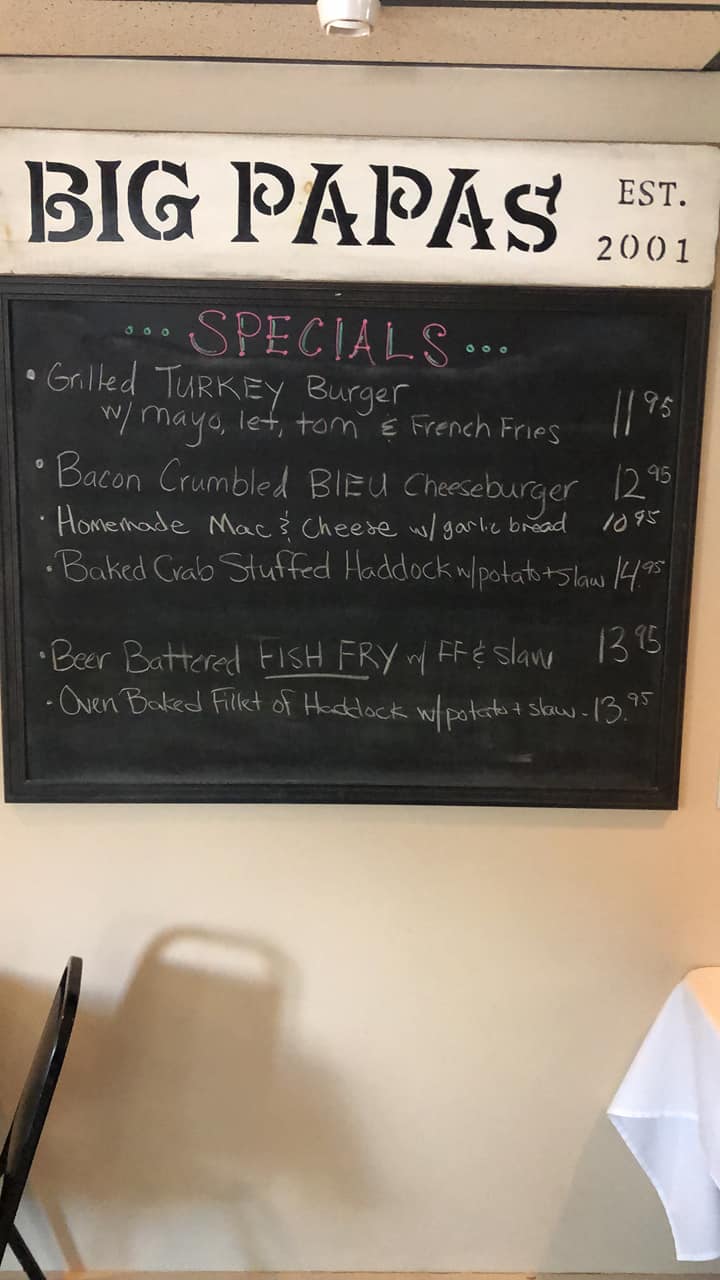 BIG PAPAS EST. 2001
... SPECIALS ...
• Grilled TURKEY Burger
w/ mayo, let, tom & French Fries 11 95
• Bacon Crumbled BlEU Cheeseburger 12 95
• Homemade Mac & Cheese w/ garlic bread 10 95
• Baked Crab Stuffed Haddock w/potato + slaw 14.95
• Beer Battered FISH FRY w/ FF & slaw 13 95
• Oven Baked Fillet of Haddock w/potato + slaw - 13.95